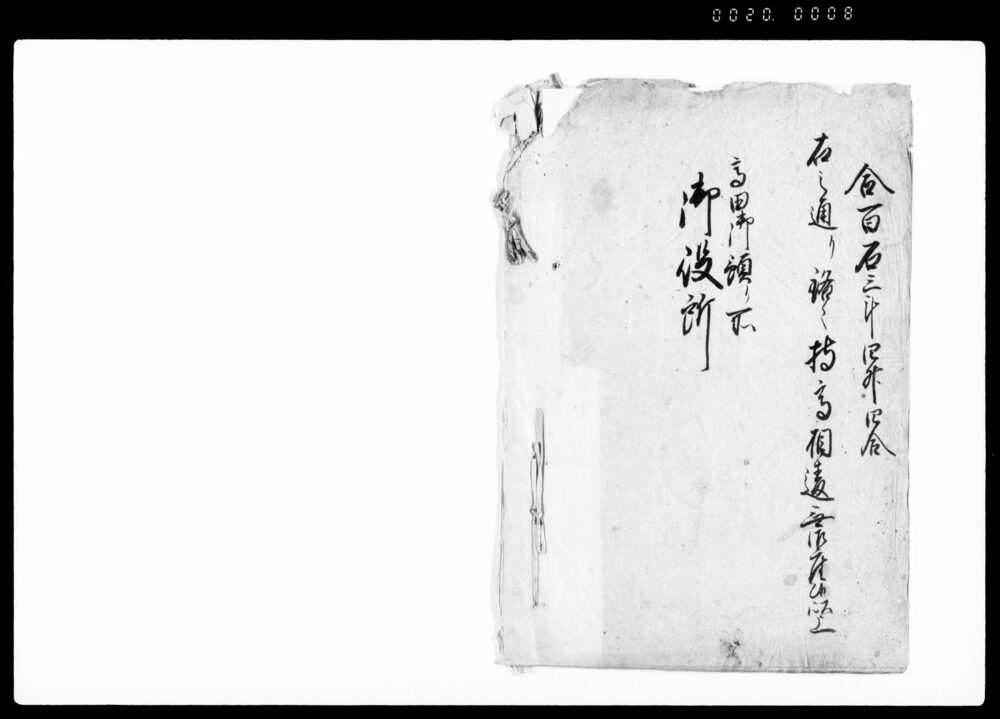 0020. 0008
合百石三斗四升四合
右之通り銘々持高相違無御座候以上
高田御預り所
御役所